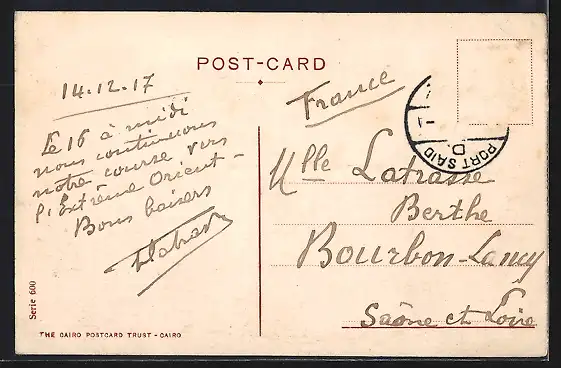 POST-CARD
14.12.17
Le 16 à midi
nous continuerons
notre course vers
l'Extrême Orient -
Bons baisers
France
PORT SAID
D
Mlle Latrasse
Berthe
Bourbon-Lancy
Saône et Loire
Serie 600
THE CAIRO POSTCARD TRUST - CAIRO.